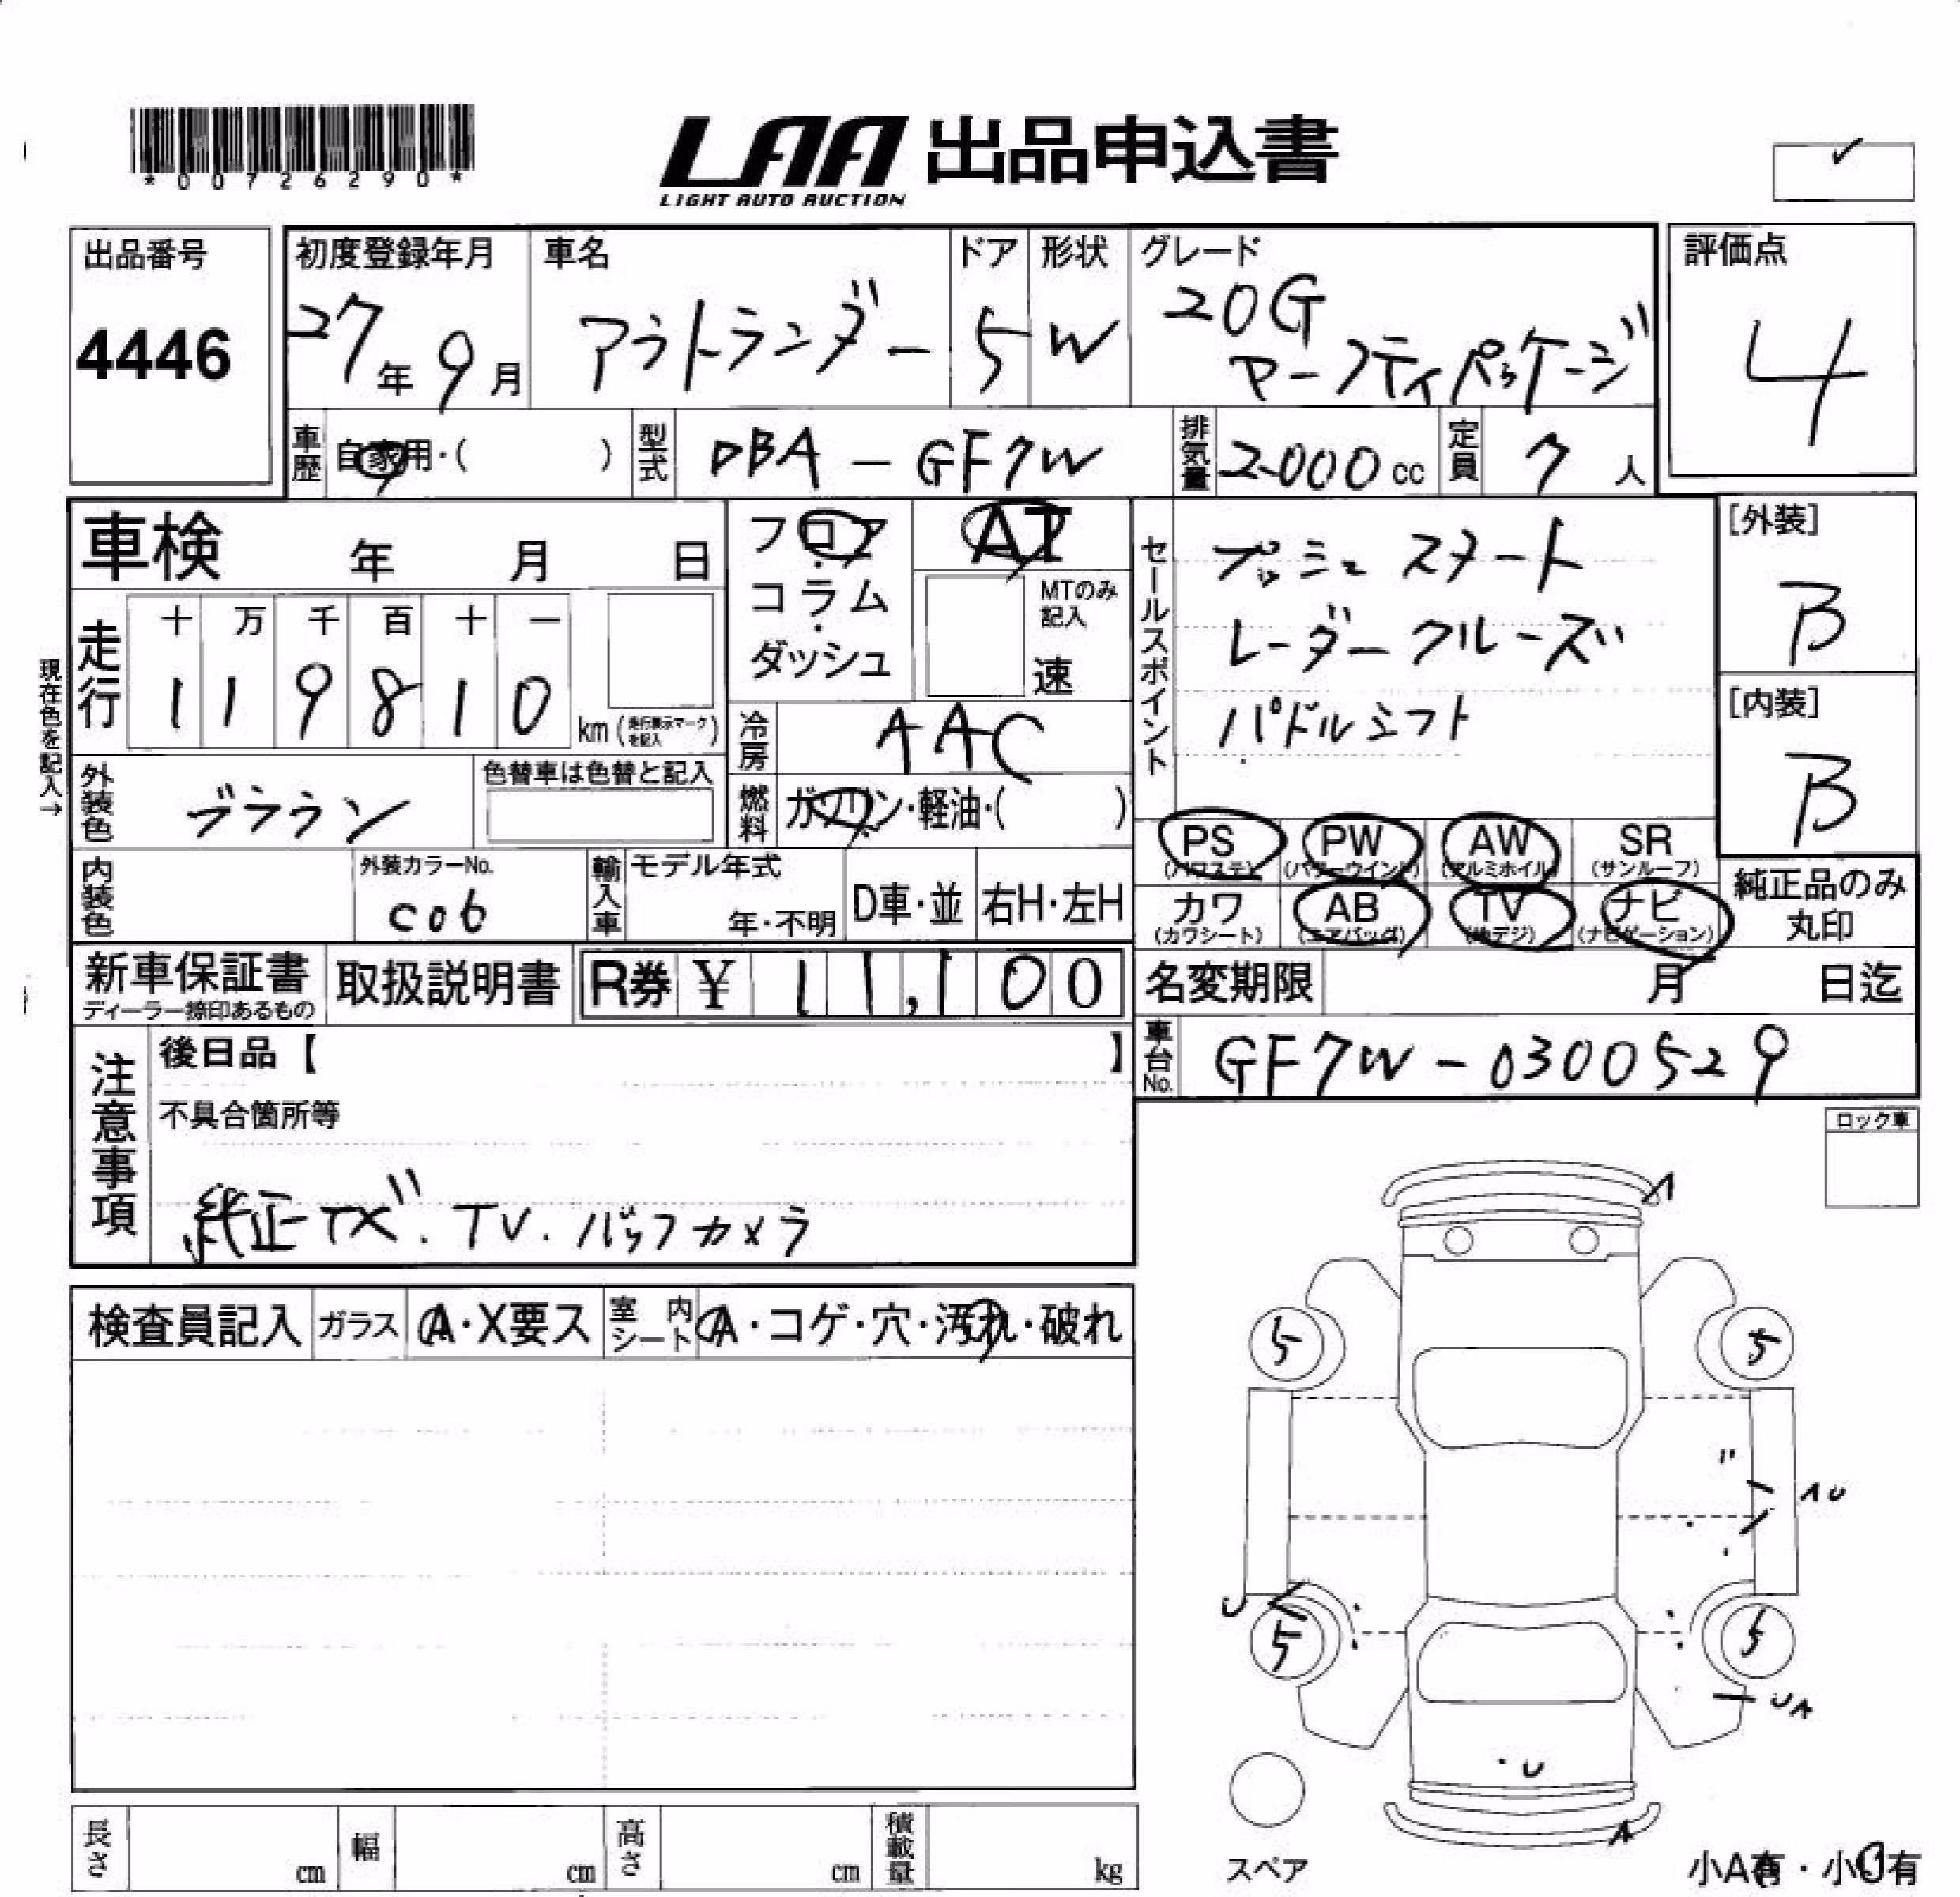 *00726290*
LAA 出品申込書
LIGHT AUTO AUCTION
出品番号
4446
初度登録年月
27年 9月
車名
アウトランダー
ドア
5
形状
W
グレード
20G
セーフティパッケージ
評価点
4
車歴
自家用・( )
型式
DBA - GF7W
排気量
2000 cc
定員
7 人
車検 年 月 日
フロア・コラム・ダッシュ
AT
MTのみ記入
速
セールスポイント
プッシュ スタート
レーダー クルーズ
パドルシフト
[外装]
B
[内装]
B
現在色を記入→
走行
十 万 千 百 十 一
1 1 9 8 1 0
km (走行表示マークを記入)
冷房
AAC
外装色
ブラウン
色替車は色替と記入
燃料
ガソリン・軽油・( )
PS (パワステ)
PW (パワーウインド)
AW (アルミホイル)
SR (サンルーフ)
カワ (カワシート)
AB (エアバッグ)
TV (地デジ)
ナビ (ナビゲーション)
純正品のみ丸印
内装色
外装カラーNo.
C06
輸入車
モデル年式
年・不明
D車・並
右H・左H
新車保証書
ディーラー捺印あるもの
取扱説明書
R券 ¥ 11,100
名変期限 月 日迄
車台No.
GF7W - 0300529
注意事項
後日品【 】
不具合箇所等
純正ナビ. TV. バックカメラ
ロック車
検査員記入
ガラス
A・X要ス
室内シート
A・コゲ・穴・汚れ・破れ
A
5 5
AU
U
5 5
UA
U
A
スペア
小A有・小U有
長さ cm
幅 cm
高さ cm
積載量 kg